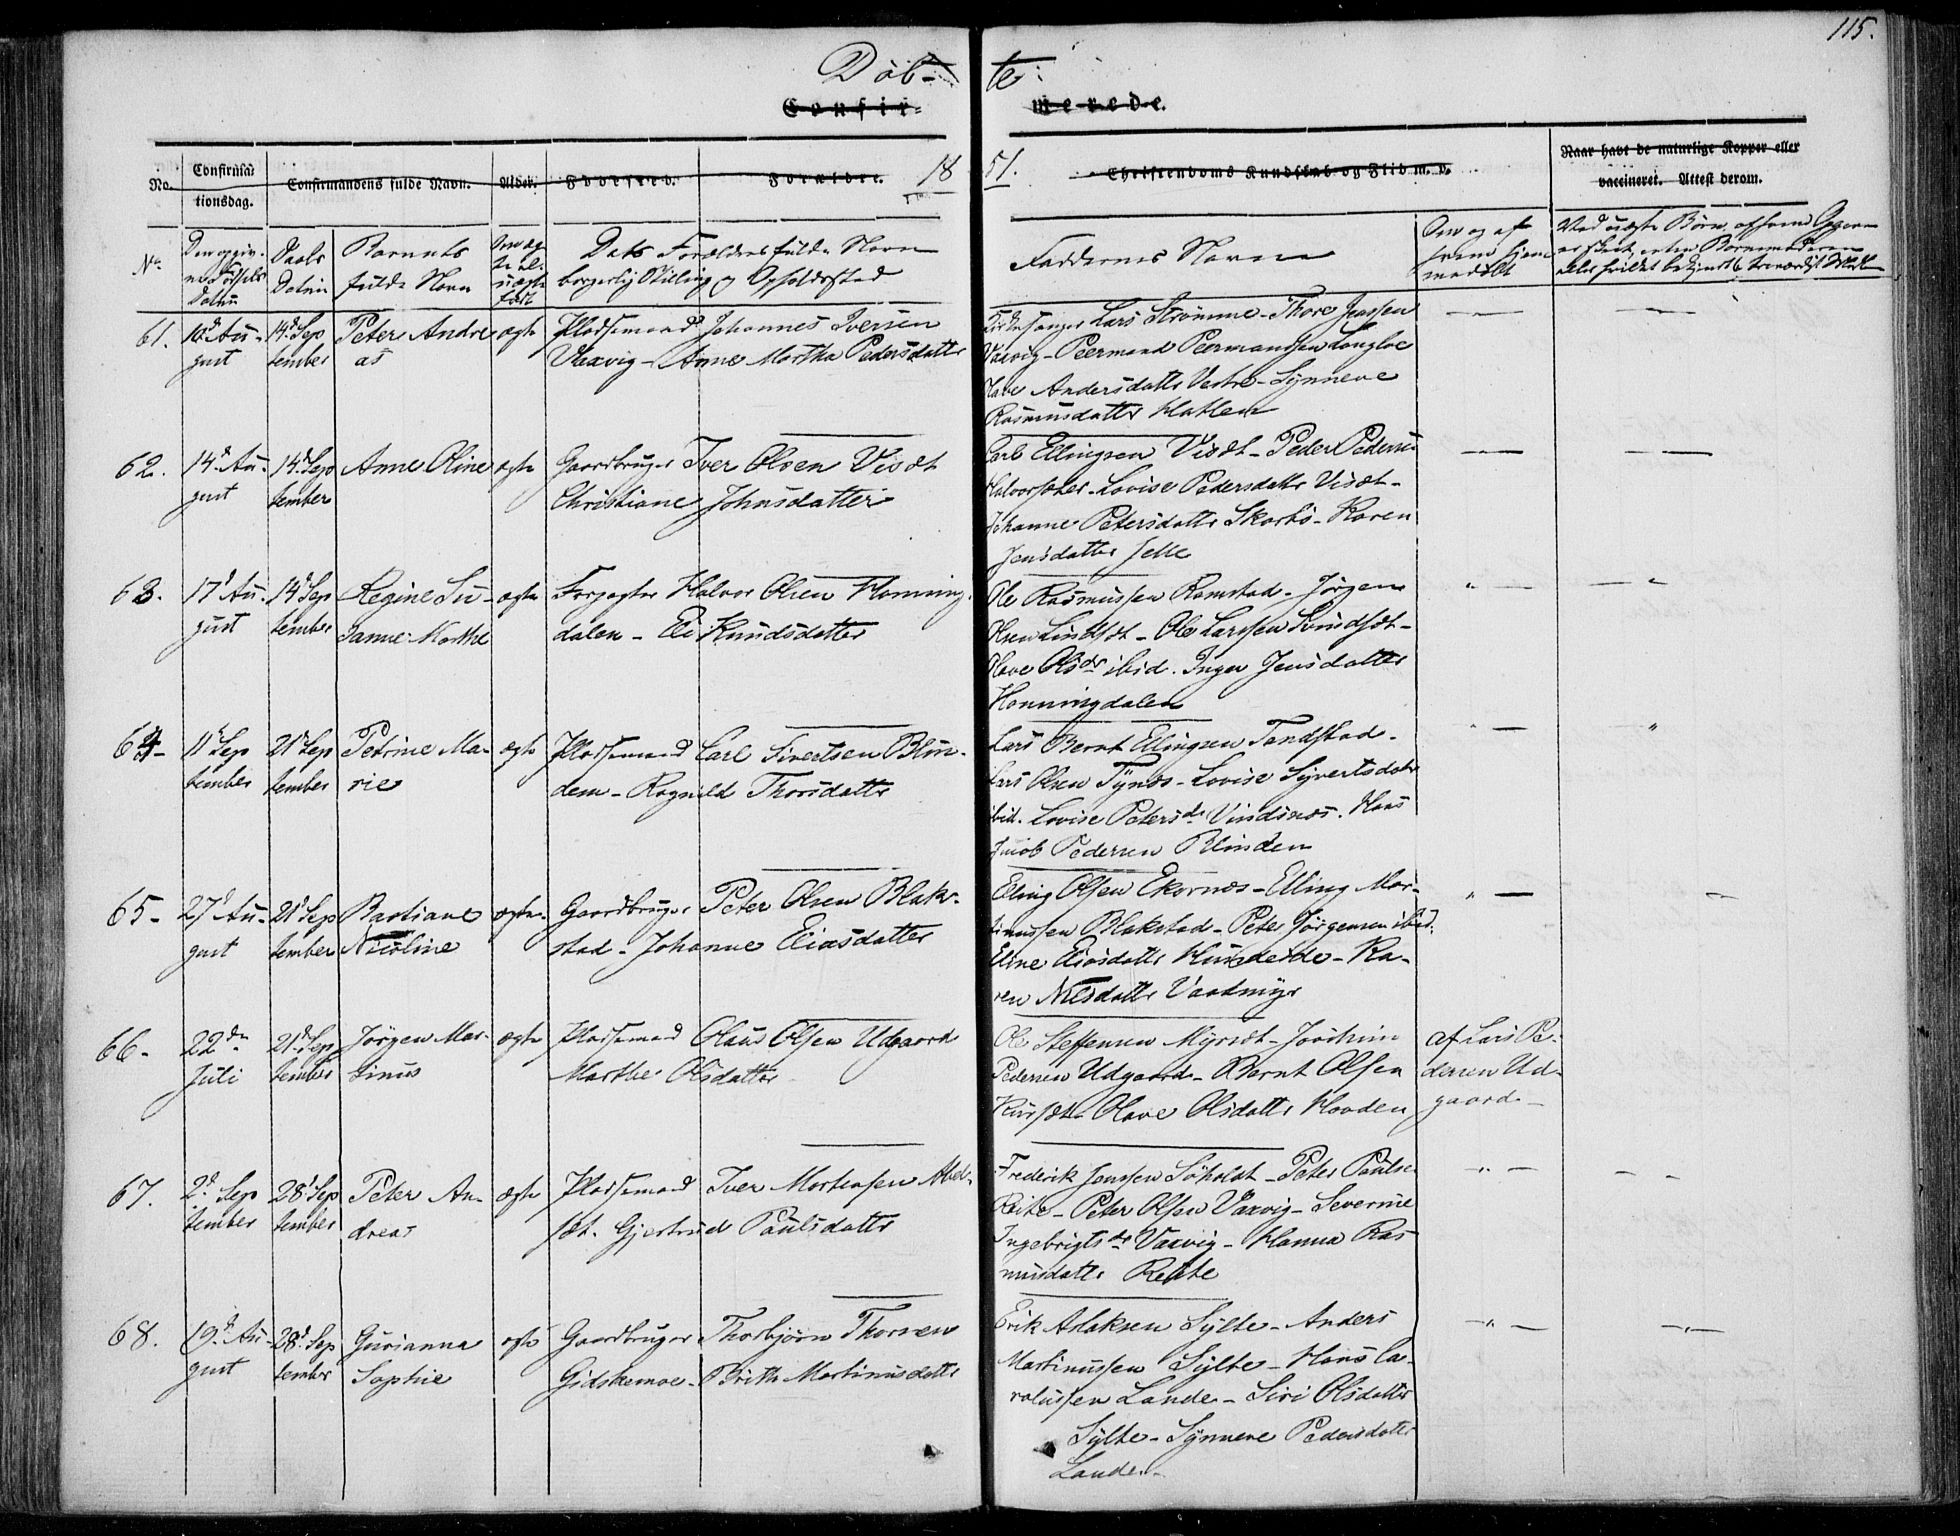 115.
Döb-
te:
Confir-
merede.
No.
Confirma-
tionsdag.
Confirmandens fulde Navn.
Alder.
Fødested.
Forældre.
18
51.
Christendoms Kundskab og Flid m. v.
Naar havt de naturlige Kopper eller
vaccineret. Attest derom.
No
Den opgiv-
ne Födsels
Datum
Daabs
Datum
Barnets
fulde Navn
Om æg
te el.
uægte
født
Dets Forældres fulde Navn
borgerlig Stilling og Opholdssted
Faddernes Navn
Om og af
hvem hjem
medöbt
Ved uægte Börn, af hvem Opgaven
er skeet, enten Barnemoderen
61.
10d Au-
gust
14d Sep
tember
Peter Andre
as
ægte
Pladsemand Johannes Iversen
Vaxvig - Anne Martha Pedersdatter
Kirkesanger Lars Strömme - Thore Jenssen
Vaxvig - Peermand Peermandsen Langloe
Andersdatter Vestre - Synneve
Rasmusdatter Hatlem
62.
14d Au-
gust
14d Sep
tember
Anne Oline
ægte
Gaardbruger Iver Olsen Visæt
Christiane Johnsdatter
Carl Ellingsen Visæt - Peder Pedersen
Halvorsæter - Lovise Pedersdatter Visæt -
Johanne Petersdatter Skorbö - Karen
Jensdatter Jelle
63.
17d Au-
gust
14d Sep
tember
Regine Su-
sanne Marthe
ægte
Forpagter Halvor Olsen Honning-
dalen - Eli Knudsdatter
Ole Rasmussen Ramstad - Jörgen
Olsen Lindsæt - Ole Larssen Svindsæt -
Olave Olsdr ibid. Inger Jensdatter
Honningdalen
64-
11d Sep
tember
21d Sep
tember
Petrine Ma-
rie
ægte
Pladsemand Carl Sivertsen Blin-
dem - Ragnild Thorsdatter
Lars Bernt Ellingsen Tandstad -
Lars Olsen Tynes - Lovise Syvertsdatr
ibid. Lovise Petersdr Vindsnæs. Hans
Jacob Pedersen Blinden
65-
27d Au-
gust
21d Sep
tember
Bastiane
Nicoline
ægte
Gaardbruger Peter Olsen Blak-
stad - Johanne Eliasdatter
Elling Olsen Ekornæs - Elling Mar-
tinussen Blakstad - Peter Jörgensen ibid.
Eline Eliasdatter Hundeide - Ka-
ren Nilsdatter Vaatmyr
66-
22de
Juli
21d Sep
tember
Jörgen Mar-
tinus
ægte
Pladsemand Olaus Olsen Udgaard
Marthe Olsdatter
Ole Steffensen Myrsæt - Joachim
Pedersen Udgaard - Bernt Olsen
Kursæt - Olave Olsdatter Hovden
af Lars Pe-
dersen Ud-
gaard -
67.
2d Sep
tember
28d Sep
tember
Peter An-
dreas
ægte
Pladsemand Iver Mortensen Abel-
sæt. Gjertrud Paulsdatter
Frederik Jenssen Söholdt - Peter Paulsen
Reite - Peter Olsen Vaxvig - Severine
Ingebrigtsdr Vaxvig - Hanna Ras-
musdatter Reite
68.
19d Au-
gust
28d Sep
tember
Gurianna
Sophie
ægte
Gaardbruger Thorbjörn Thorsen
Gidskemoe - Brith Martinusdatter
Erik Aslaksen Sylte - Anders
Martinussen Sylte - Hans Ca-
rolussen Lande - Siri Olsdatter
Sylte - Synneve Pedersdatter
Lande -